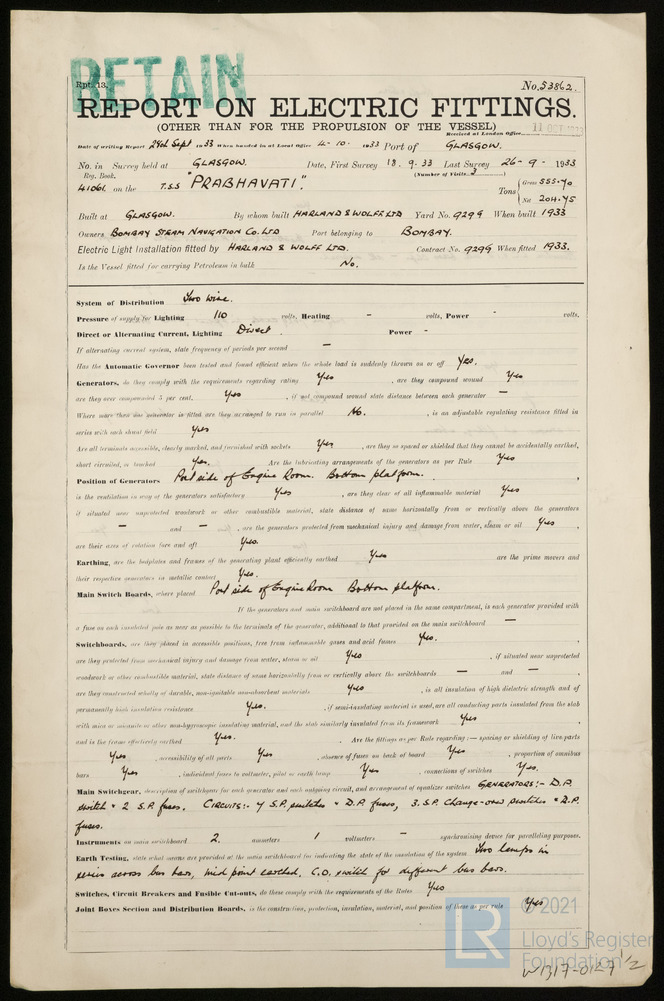 RETAIN
Rpt. 13. No. 53862.
REPORT ON ELECTRIC FITTINGS.
(OTHER THAN FOR THE PROPULSION OF THE VESSEL)
Received at London Office 11 OCT 1933
Date of writing Report 29th Sept 1933 When handed in at Local Office 4-10-1933 Port of GLASGOW.
No. in Survey held at GLASGOW. Date, First Survey 18.9.33 Last Survey 26-9-1933
Reg. Book. (Number of Visits 3)
41061 on the T.S.S "PRABHAVATI". Tons Gross 555.70
Net 204.45
Built at GLASGOW. By whom built HARLAND & WOLFF LTD Yard No. 929g When built 1933
Owners BOMBAY STEAM NAVIGATION Co. LTD Port belonging to BOMBAY.
Electric Light Installation fitted by HARLAND & WOLFF LTD. Contract No. 929g When fitted 1933.
Is the Vessel fitted for carrying Petroleum in bulk No.
System of Distribution Two wire.
Pressure of supply for Lighting 110 volts, Heating - volts, Power - volts,
Direct or Alternating Current, Lighting Direct Power -
If alternating current system, state frequency of periods per second -
Has the Automatic Governor been tested and found efficient when the whole load is suddenly thrown on or off Yes.
Generators, do they comply with the requirements regarding rating Yes, are they compound wound Yes
are they over compounded 5 per cent. Yes, if not compound wound state distance between each generator -
Where more than one generator is fitted are they arranged to run in parallel No., is an adjustable regulating resistance fitted in
series with each shunt field Yes
Are all terminals accessible, clearly marked, and furnished with sockets Yes, are they so spaced or shielded that they cannot be accidentally earthed,
short circuited, or touched Yes. Are the lubricating arrangements of the generators as per Rule Yes
Position of Generators Port side of Engine Room. Bottom platform.
is the ventilation in way of the generators satisfactory Yes, are they clear of all inflammable material Yes
if situated near unprotected woodwork or other combustible material, state distance of same horizontally from or vertically above the generators
- and -, are the generators protected from mechanical injury and damage from water, steam or oil Yes,
are their axes of rotation fore and aft Yes.
Earthing, are the bedplates and frames of the generating plant efficiently earthed Yes are the prime movers and
their respective generators in metallic contact Yes.
Main Switch Boards, where placed Port side of Engine Room Bottom platform.
If the generators and main switchboard are not placed in the same compartment, is each generator provided with
a fuse on each insulated pole as near as possible to the terminals of the generator, additional to that provided on the main switchboard -
Switchboards, are they placed in accessible positions, free from inflammable gases and acid fumes Yes.
are they protected from mechanical injury and damage from water, steam or oil Yes, if situated near unprotected
woodwork or other combustible material, state distance of same horizontally from or vertically above the switchboards - and -,
are they constructed wholly of durable, non-ignitable non-absorbent materials Yes, is all insulation of high dielectric strength and of
permanently high insulation resistance Yes., if semi-insulating material is used, are all conducting parts insulated from the slab
with mica or micanite or other non-hygroscopic insulating material, and the slab similarly insulated from its framework Yes,
and is the frame effectively earthed Yes. Are the fittings as per Rule regarding:— spacing or shielding of live parts
Yes, accessibility of all parts Yes, absence of fuses on back of board Yes, proportion of omnibus
bars Yes, individual fuses to voltmeter, pilot or earth lamp Yes, connections of switches Yes.
Main Switchgear, description of switchgear for each generator and each outgoing circuit, and arrangement of equalizer switches GENERATORS:- D.P.
switch & 2 S.P. fuses. CIRCUITS:- 4 S.P. switches & D.P. fuses, 3. S.P. Change-over switches & D.P.
fuses.
Instruments on main switchboard 2. ammeters 1 voltmeters - synchronising device for paralleling purposes.
Earth Testing, state what means are provided at the main switchboard for indicating the state of the insulation of the system Two lamps in
series across bus bars, mid point earthed. C.O. switch for different bus bars.
Switches, Circuit Breakers and Fusible Cut-outs, do these comply with the requirements of the Rules Yes
Joint Boxes Section and Distribution Boards, is the construction, protection, insulation, material, and position of these as per rule Yes
© 2021
LR
Lloyd's Register
Foundation
W1317-0127 1/2